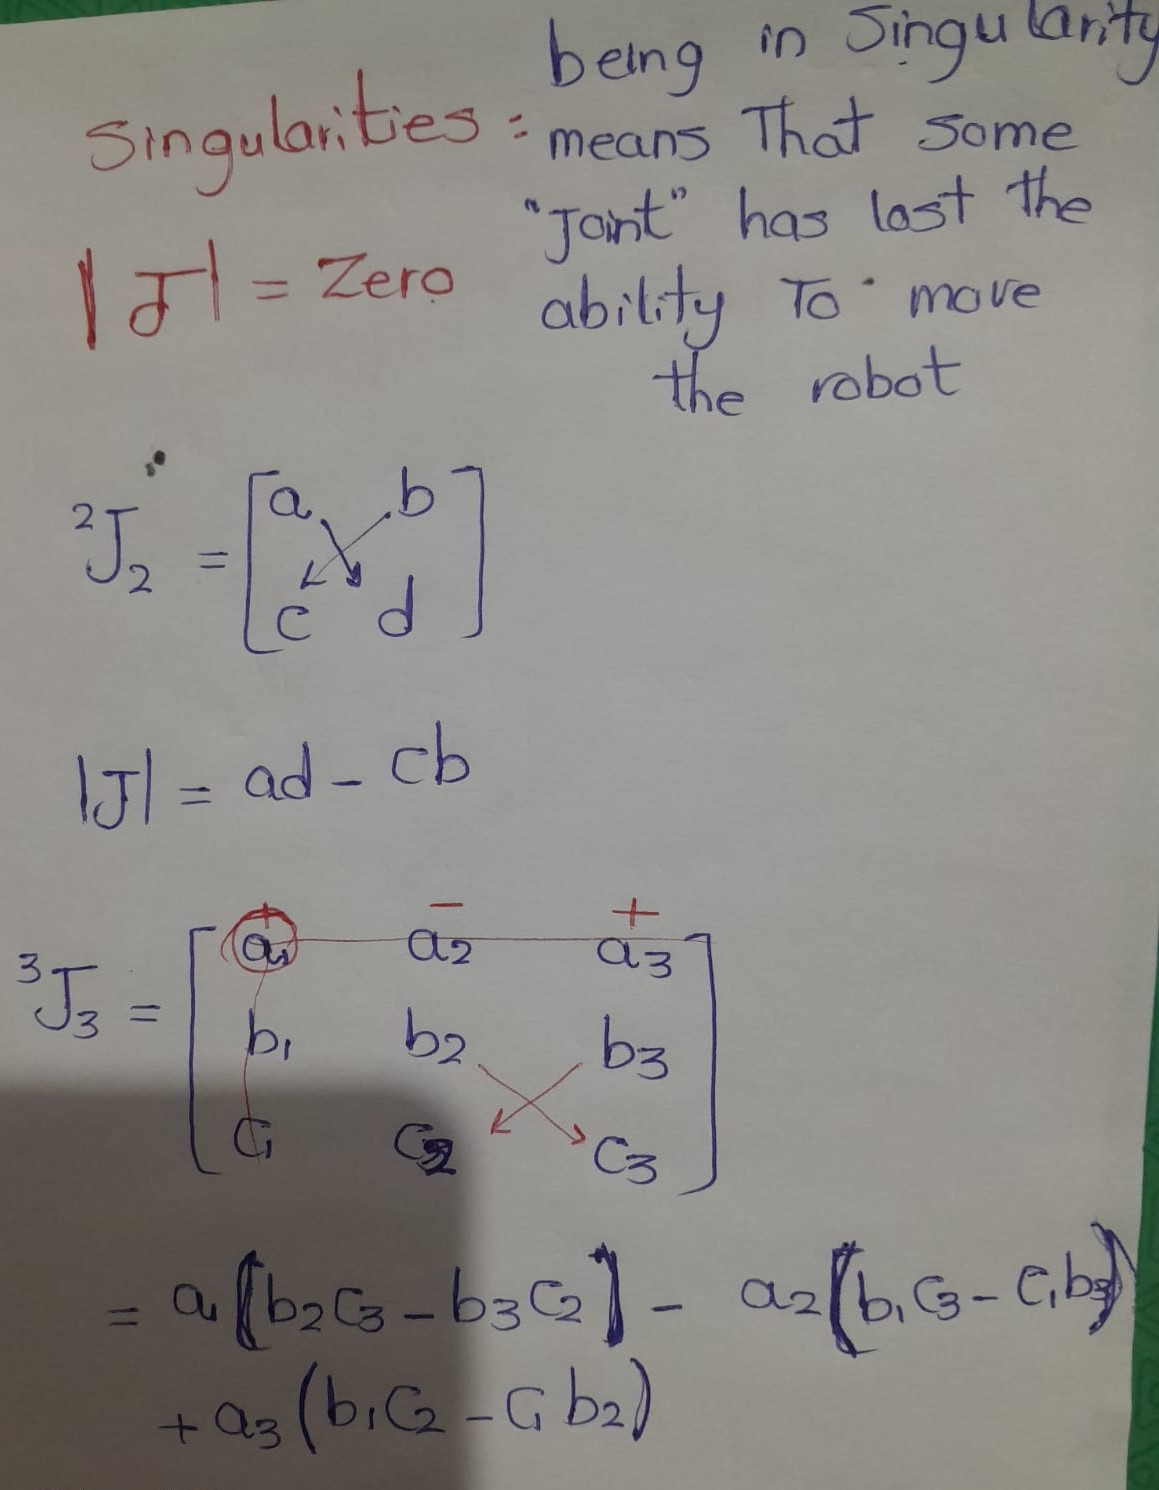 being in Singularity
Singularities : means That some
"Joint" has lost the
|J| = Zero
ability To move
the robot
²J₂ = [a b
c d]
|J| = ad - cb
+ - +
³J₃ = [a₁ a₂ a₃
b₁ b₂ b₃
c₁ c₂ c₃]
= a₁[b₂c₃ - b₃c₂] - a₂(b₁c₃ - c₁b₃)
+ a₃(b₁c₂ - c₁b₂)